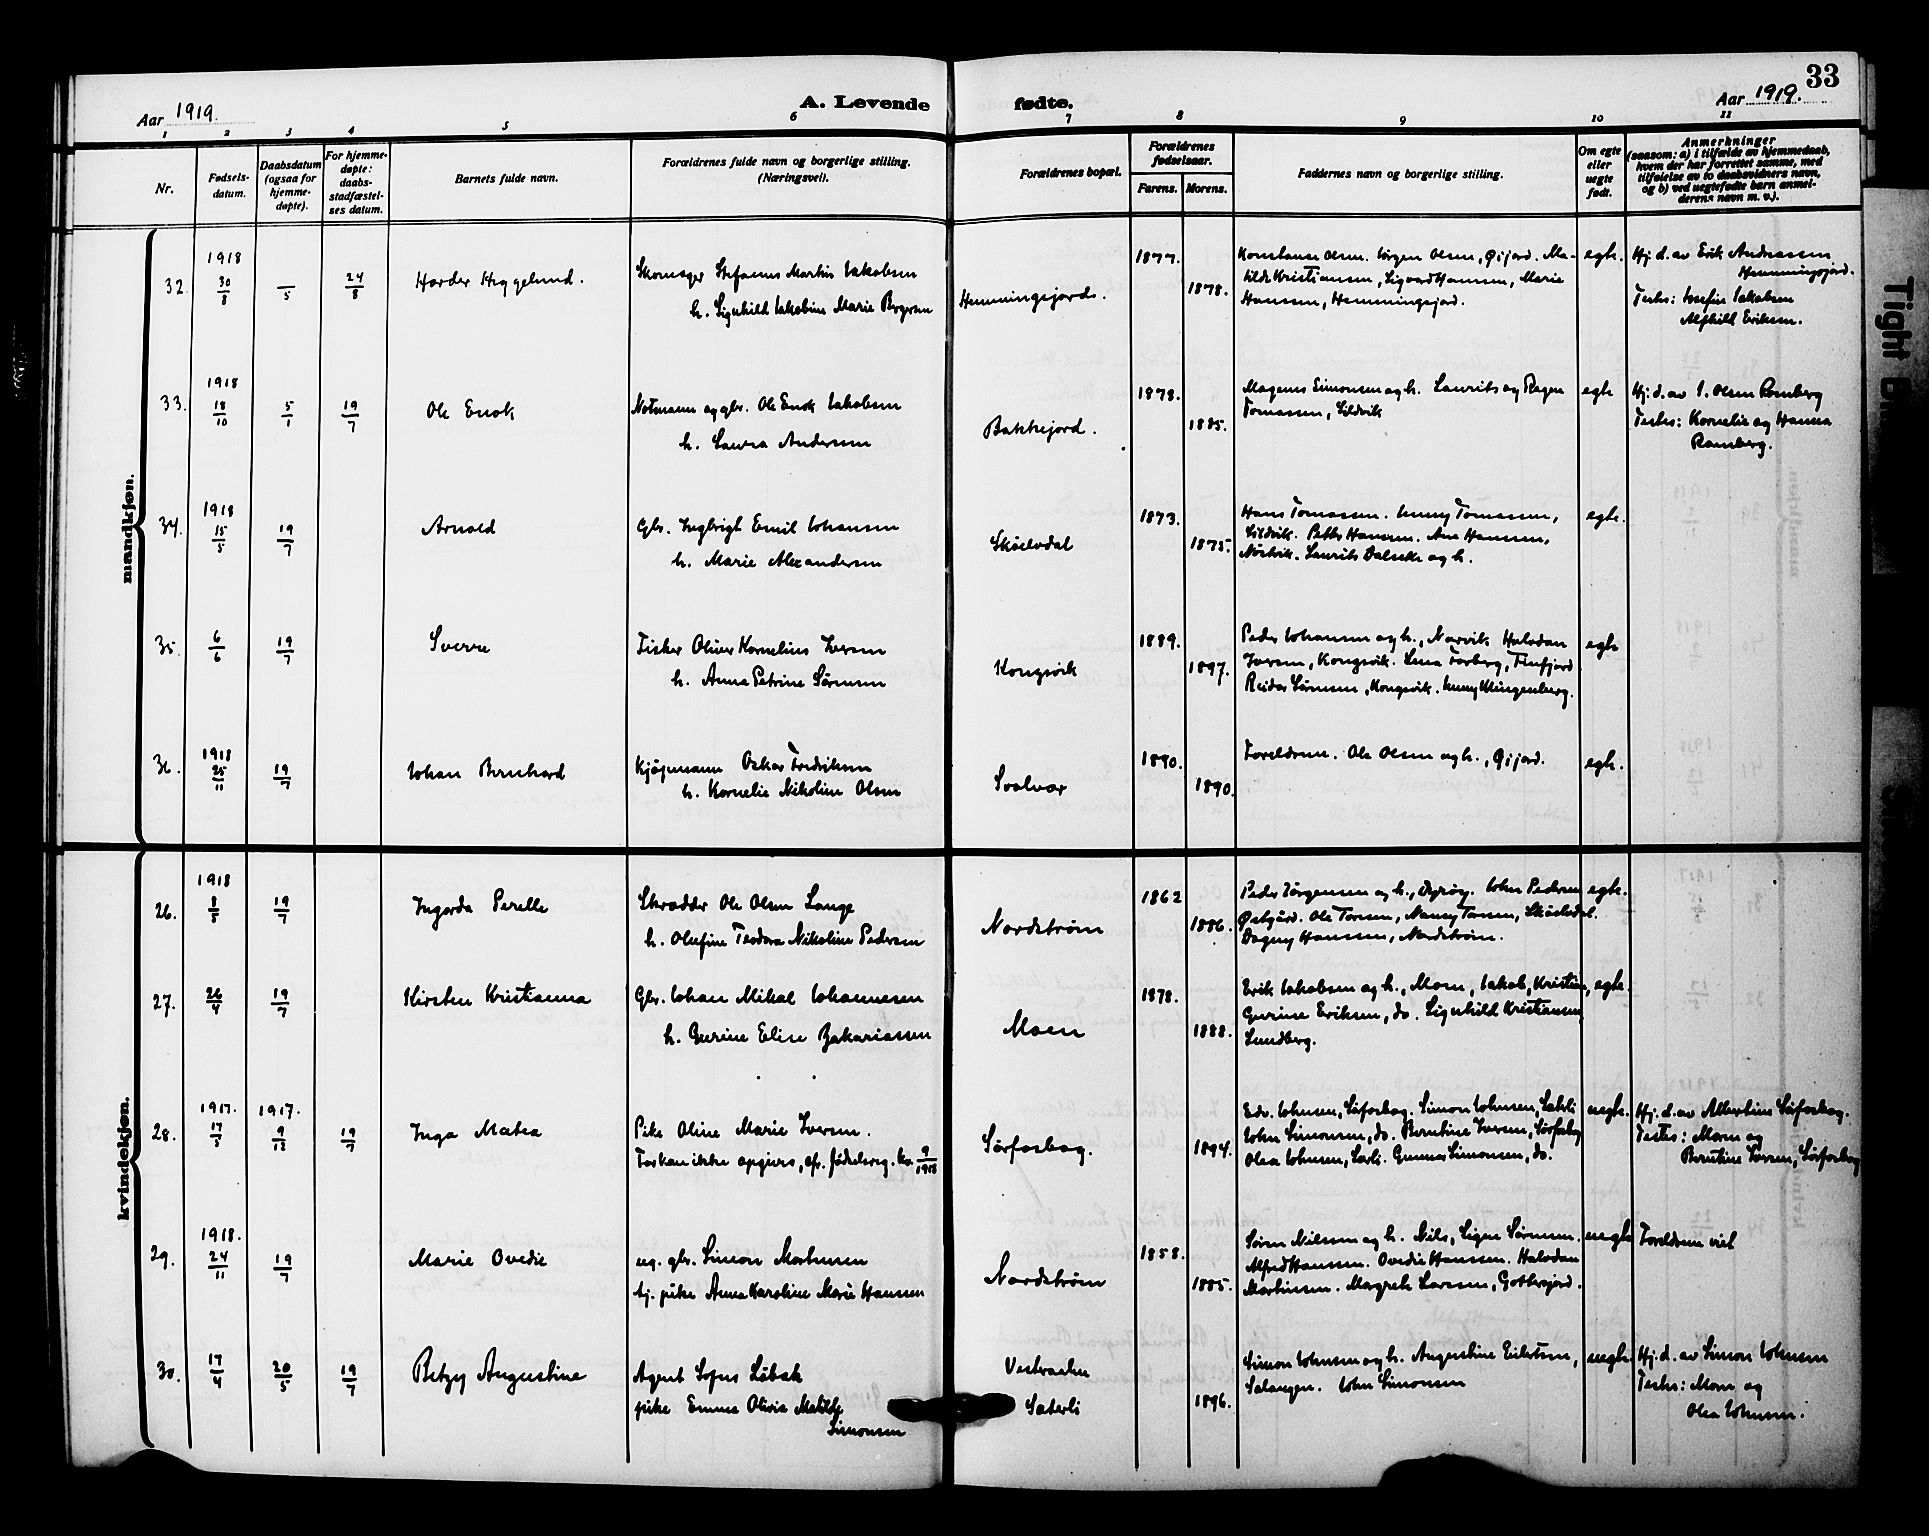 33
Aar 1919.
A. Levende fødte.
Aar 1919.
1 2 3 4 5 6 7 8 9 10 11
Nr.
Fødsels-
datum.
Daabsdatum
(ogsaa for
hjemme-
døpte).
For hjemme-
døpte:
daabs-
stadfæstel-
ses datum.
Barnets fulde navn.
Forældrenes fulde navn og borgerlige stilling.
(Næringsvei).
Forældrenes bopæl.
Forældrenes
fødselsaar.
Farens. Morens.
Faddernes navn og borgerlige stilling.
Om egte
eller
uegte
født.
Anmerkninger
(saasom: a) i tilfælde av hjemmedaab,
hvem der har forrettet samme, med
tilføielse av to daabsvidners navn,
og b) ved uegtefødte barn anmel-
derens navn m. v.).
mandkjøn.
32. 1918 30/8 /5 24/8 Harder Heggelund.
Skomager Stefanus Martin Jakobsen
h. Signhild Jakobine Marie Bergersen
Hemmingsjord. 1877. 1878.
Konstanse Olsen. Jørgen Olsen, Gijord. Ma-
tilde Kristiansen, Sigvard Hansen, Marie
Hansen, Hemmingsjord.
egte.
Hj. d. av Erik Andreassen
Hemmingsjord.
Testes: Josefine Jakobsen
Alfhild Eriksen.
33. 1918 18/10 5/1 19/7 Ole Enok
Notmann og gbr. Ole Enok Jakobsen
h. Laura Andersen
Bakkejord. 1878. 1885.
Magnus Simonsen og h. Laurits og Ragna
Tomassen, Sildvik
egte
Hj. d. av I. Olsen Ramberg
Testes: Kornelie og Hanna
Ramberg.
34. 1918 15/5 19/7 Arnold
Gbr. Ingbrigt Emil Johansen
h. Marie Alexandersen
Skøelvdal 1873. 1875.
Hans Tomassen. Jenny Tomassen,
Sildvik. Petter Hansen. Ane Hansen,
Laurits Dalsekke og h.
egte.
35. 6/6 19/7 Sverre
Fisker Oliver Kornelius Iversen
h. Anna Petrine Sørensen
Kongsvik 1889. 1897.
Peder Johansen og h., Narvik. Halvdan
Iversen, Kongsvik. Lena Forberg, Finfjord
Reidar Sørensen, Kongsvik. Jenny Klingenberg.
egte
36. 1918 25/11 19/7 Johan Bernhard
Kjøpmann Oskar Fredriksen
h. Kornelie Nikoline Olsen
Svolvær 1890. 1890.
Foreldrene. Ole Olsen og h., Gijord.
egte.
kvindekjøn.
26. 1918 8/5 19/7 Ingarda Perelle
Skrædder Ole Olsen Lange
h. Olufine Teodora Nikoline Pedersen
Nordstrøm 1862 1886.
Peder Jørgensen og h., Dyrøy. John Pedersen
Østgård. Ole Torsen, Nanny Torsen, Skøelvdal.
Dagny Hansen, Nordstrøm.
egte.
27. 26/4 19/7 Kirsten Kristianna
Gbr. Johan Mikal Johannesen
h. Gurine Elise Zakariassen
Moen 1878. 1888.
Erik Jakobsen og h., Moen, Jakob, Kristine,
Gurine Eriksen, do. Signhild Kristiansen,
Lundberg.
egte.
28. 1917. 17/5 1917. 9/12 19/7 Inga Matea
Pike Oline Marie Iversen.
Farskan ikke opgives, cfr. fødselsreg. kv. 9/1918
Sørforsbag. 1894.
Edv. Johnsen, Sørforsbag. Simon Johnsen, Sæterli
John Simonsen, do. Berntine Iversen, Sørforsbag
Olea Johnsen, Sæterli. Gunnar Simonsen, do.
uegte.
Hj. d. av Albertine Sørforsbag.
Testes: Moren og
Berntine Iversen, Sørforsbag
29. 1918. 24/11 19/7 Marie Ovedie
ug. gbr. Simon Mortensen
tj. pike Anna Karoline Marie Hansen
Nordstrøm 1858. 1885.
Søren Nilssen og h. Nils, Signe Sørensen.
Alfred Hansen. Ovedie Hansen. Halvdan
Martinsen. Magrete Larssen, Gottesjord.
uegte
Foreldrene viet
30. 17/4 20/5 19/7 Betzy Augustine
Agent Sofus Løbak
pike Emma Olivia Matilde
Simonsen
Vestvaagen
Sæterli 1896.
Simon Johnsen og h. Augustine Eilertsen,
Salangen. John Simonsen
uegte.
Hj. d. av Simon Johnsen
Testes: Moren og
Olea Johnsen.
Tight